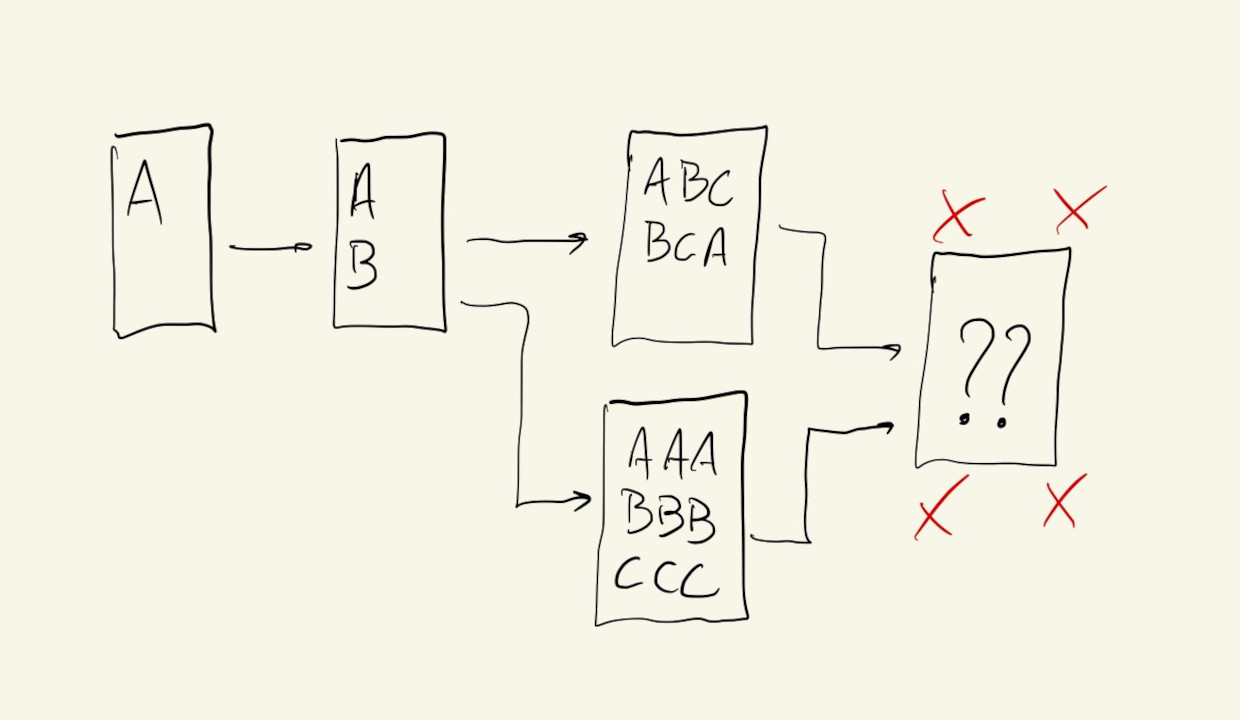 A
A
B
ABC
BCA
AAA
BBB
CCC
??